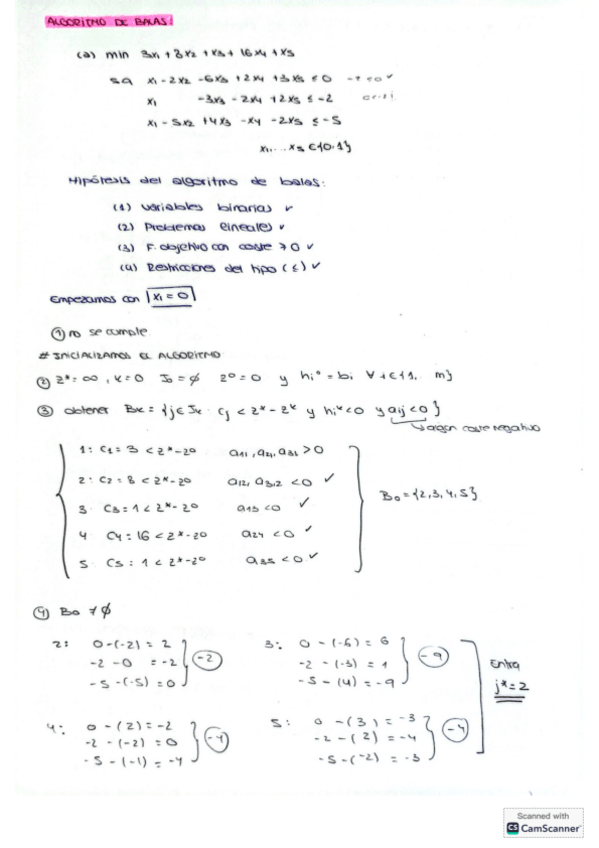 ALGORITMO DE BALAS:
(a) min 3x1 + 8x2 + x3 + 16x4 + x5
sa x1 - 2x2 - 6x3 + 2x4 + 3x5 ≤ 0
x1 - 3x3 - 2x4 + 2x5 ≤ -2
x1 - 5x2 + 4x3 - x4 - 2x5 ≤ -5
x1, ... x5 ∈ {0,1}
Hipótesis del algoritmo de balas:
(1) variables binarias ✓
(2) Problemas lineales ✓
(3) F. objetivo con coste ≥ 0 ✓
(4) Restricciones del tipo (≤) ✓
Empezamos con x1 = 0
① no se cumple.
# INICIALIZAMOS EL ALGORITMO
② z* = ∞, k = 0 J0 = ∅ z⁰ = 0 y hi⁰ = bi ∀ i ∈ {1, m}
③ obtener Bk = {j ∈ Jk. cj < z* - zᵏ y hiᵏ < 0 y aij < 0}
algún coste negativo
1: c1 = 3 < z* - z⁰ a11, a21, a31 > 0
2: c2 = 8 < z* - z⁰ a12, a32 < 0 ✓
3 c3 = 1 < z* - z⁰ a13 < 0 ✓
4 c4 = 16 < z* - z⁰ a24 < 0 ✓
5 c5: 1 < z* - z⁰ a35 < 0 ✓
B0 = {2,3,4,5}
④ B0 ≠ ∅
2: 0 - (-2) = 2
-2 - 0 = -2
-5 - (-5) = 0
-2
3: 0 - (-6) = 6
-2 - (-3) = 1
-5 - (4) = -9
-9
Entra
j* = 2
4: 0 - (2) = -2
-2 - (-2) = 0
-5 - (-1) = -4
5: 0 - (3) = -3
-2 - (2) = -4
-5 - (-2) = -3
Scanned with
CS CamScanner